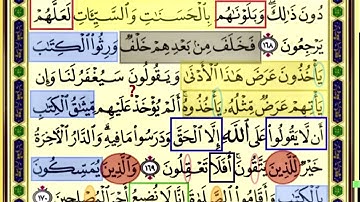 دُونَ ذَٰلِكَ ۖ وَبَلَوْنَٰهُم بِالْحَسَنَٰتِ وَالسَّيِّـَٔاتِ لَعَلَّهُمْ
يَرْجِعُونَ ١٦٨ فَخَلَفَ مِنۢ بَعْدِهِمْ خَلْفٌ وَرِثُوا۟ الْكِتَٰبَ
يَأْخُذُونَ عَرَضَ هَٰذَا الْأَدْنَىٰ وَيَقُولُونَ سَيُغْفَرُ لَنَا وَإِن
يَأْتِهِمْ عَرَضٌ مِّثْلُهُۥ يَأْخُذُوهُ ۚ ? أَلَمْ يُؤْخَذْ عَلَيْهِم مِّيثَٰقُ الْكِتَٰبِ
أَن لَّا يَقُولُوا۟ عَلَى اللَّهِ إِلَّا الْحَقَّ وَدَرَسُوا۟ مَا فِيهِ ۗ وَالدَّارُ الْءَاخِرَةُ
خَيْرٌ لِّلَّذِينَ يَتَّقُونَ ۗ أَفَلَا تَعْقِلُونَ ١٦٩ وَالَّذِينَ يُمَسِّكُونَ
بِالْكِتَٰبِ وَأَقَامُوا۟ الصَّلَوٰةَ إِنَّا لَا نُضِيعُ أَجْرَ الْمُصْلِحِينَ ١٧٠